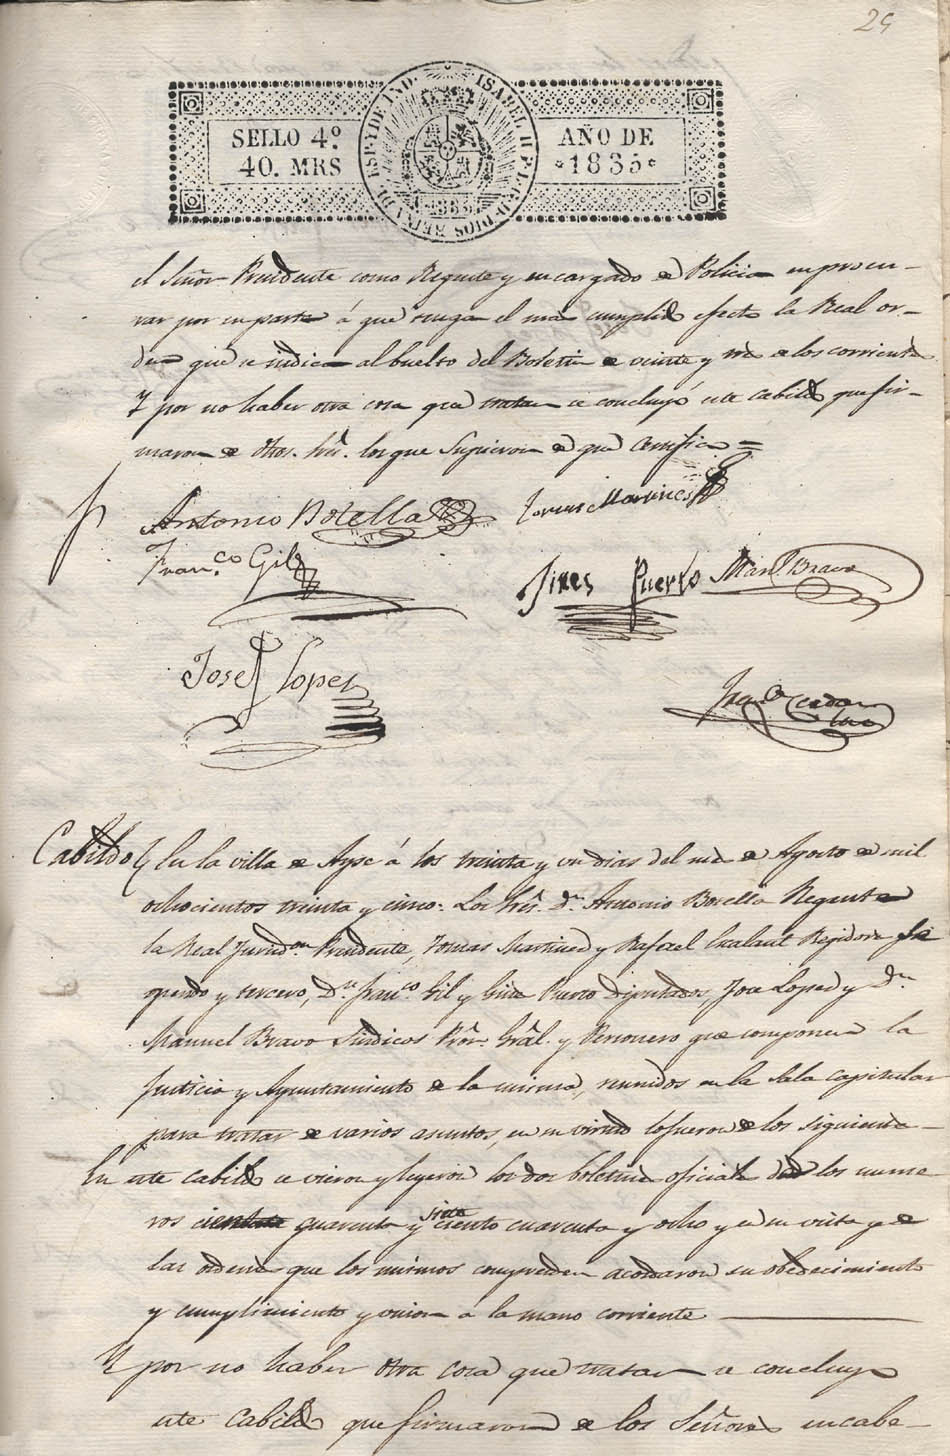 29
SELLO 4º
40. MRS
ISABEL II P. L. G. D. DIOS REINA DE ESP. Y DE IND.
1835
AÑO DE
1835
el Señor Presidente como Regente y encargado de Policia en procu-
rar por su parte á que tenga el mas cumplido efecto la Real or-
den que se indica al buelto del Boletin de veinte y tres de los corrientes
Y por no haber otra cosa que tratar se concluyó este Cabildo que fir-
maron de dhos. Sres. los que Supieron de que Certifico =
Antonio Botella
Tomas Martines
Franco Gil
Jines Puerto
Manl Bravo
Jose Lopez
Cabildo En la villa de Aspe á los treinta y un dias del mes de Agosto de mil
ochocientos treinta y cinco: Los Sres. Dn. Antonio Botella Regente
la Real Juridon. Presidente, Tomas Martinez y Rafael Regidores se
gundo y tercero, Dn. Franco Gil y Gines Puerto Diputados, Jose Lopez y Dn.
Manuel Bravo Sindicos Pror. Gral. y Personero que componen la
Justicia y Ayuntamiento de la misma, reunidos en la Sala capitular
para tratar de varios asuntos, en su virtud lo fueron de los siguientes
En este Cabildo se vieron y leyeron los dos boletines oficiales de los nume
ros ciento cuarenta y siete ciento cuarenta y ocho y en su vista y de
las ordenes que los mismos comprenden acordaron su obedecimiento
y cumplimiento y union a la mano corriente
Y por no haber otra cosa que tratar se concluyo
este Cabildo que firmaron de los Señores en cabe-